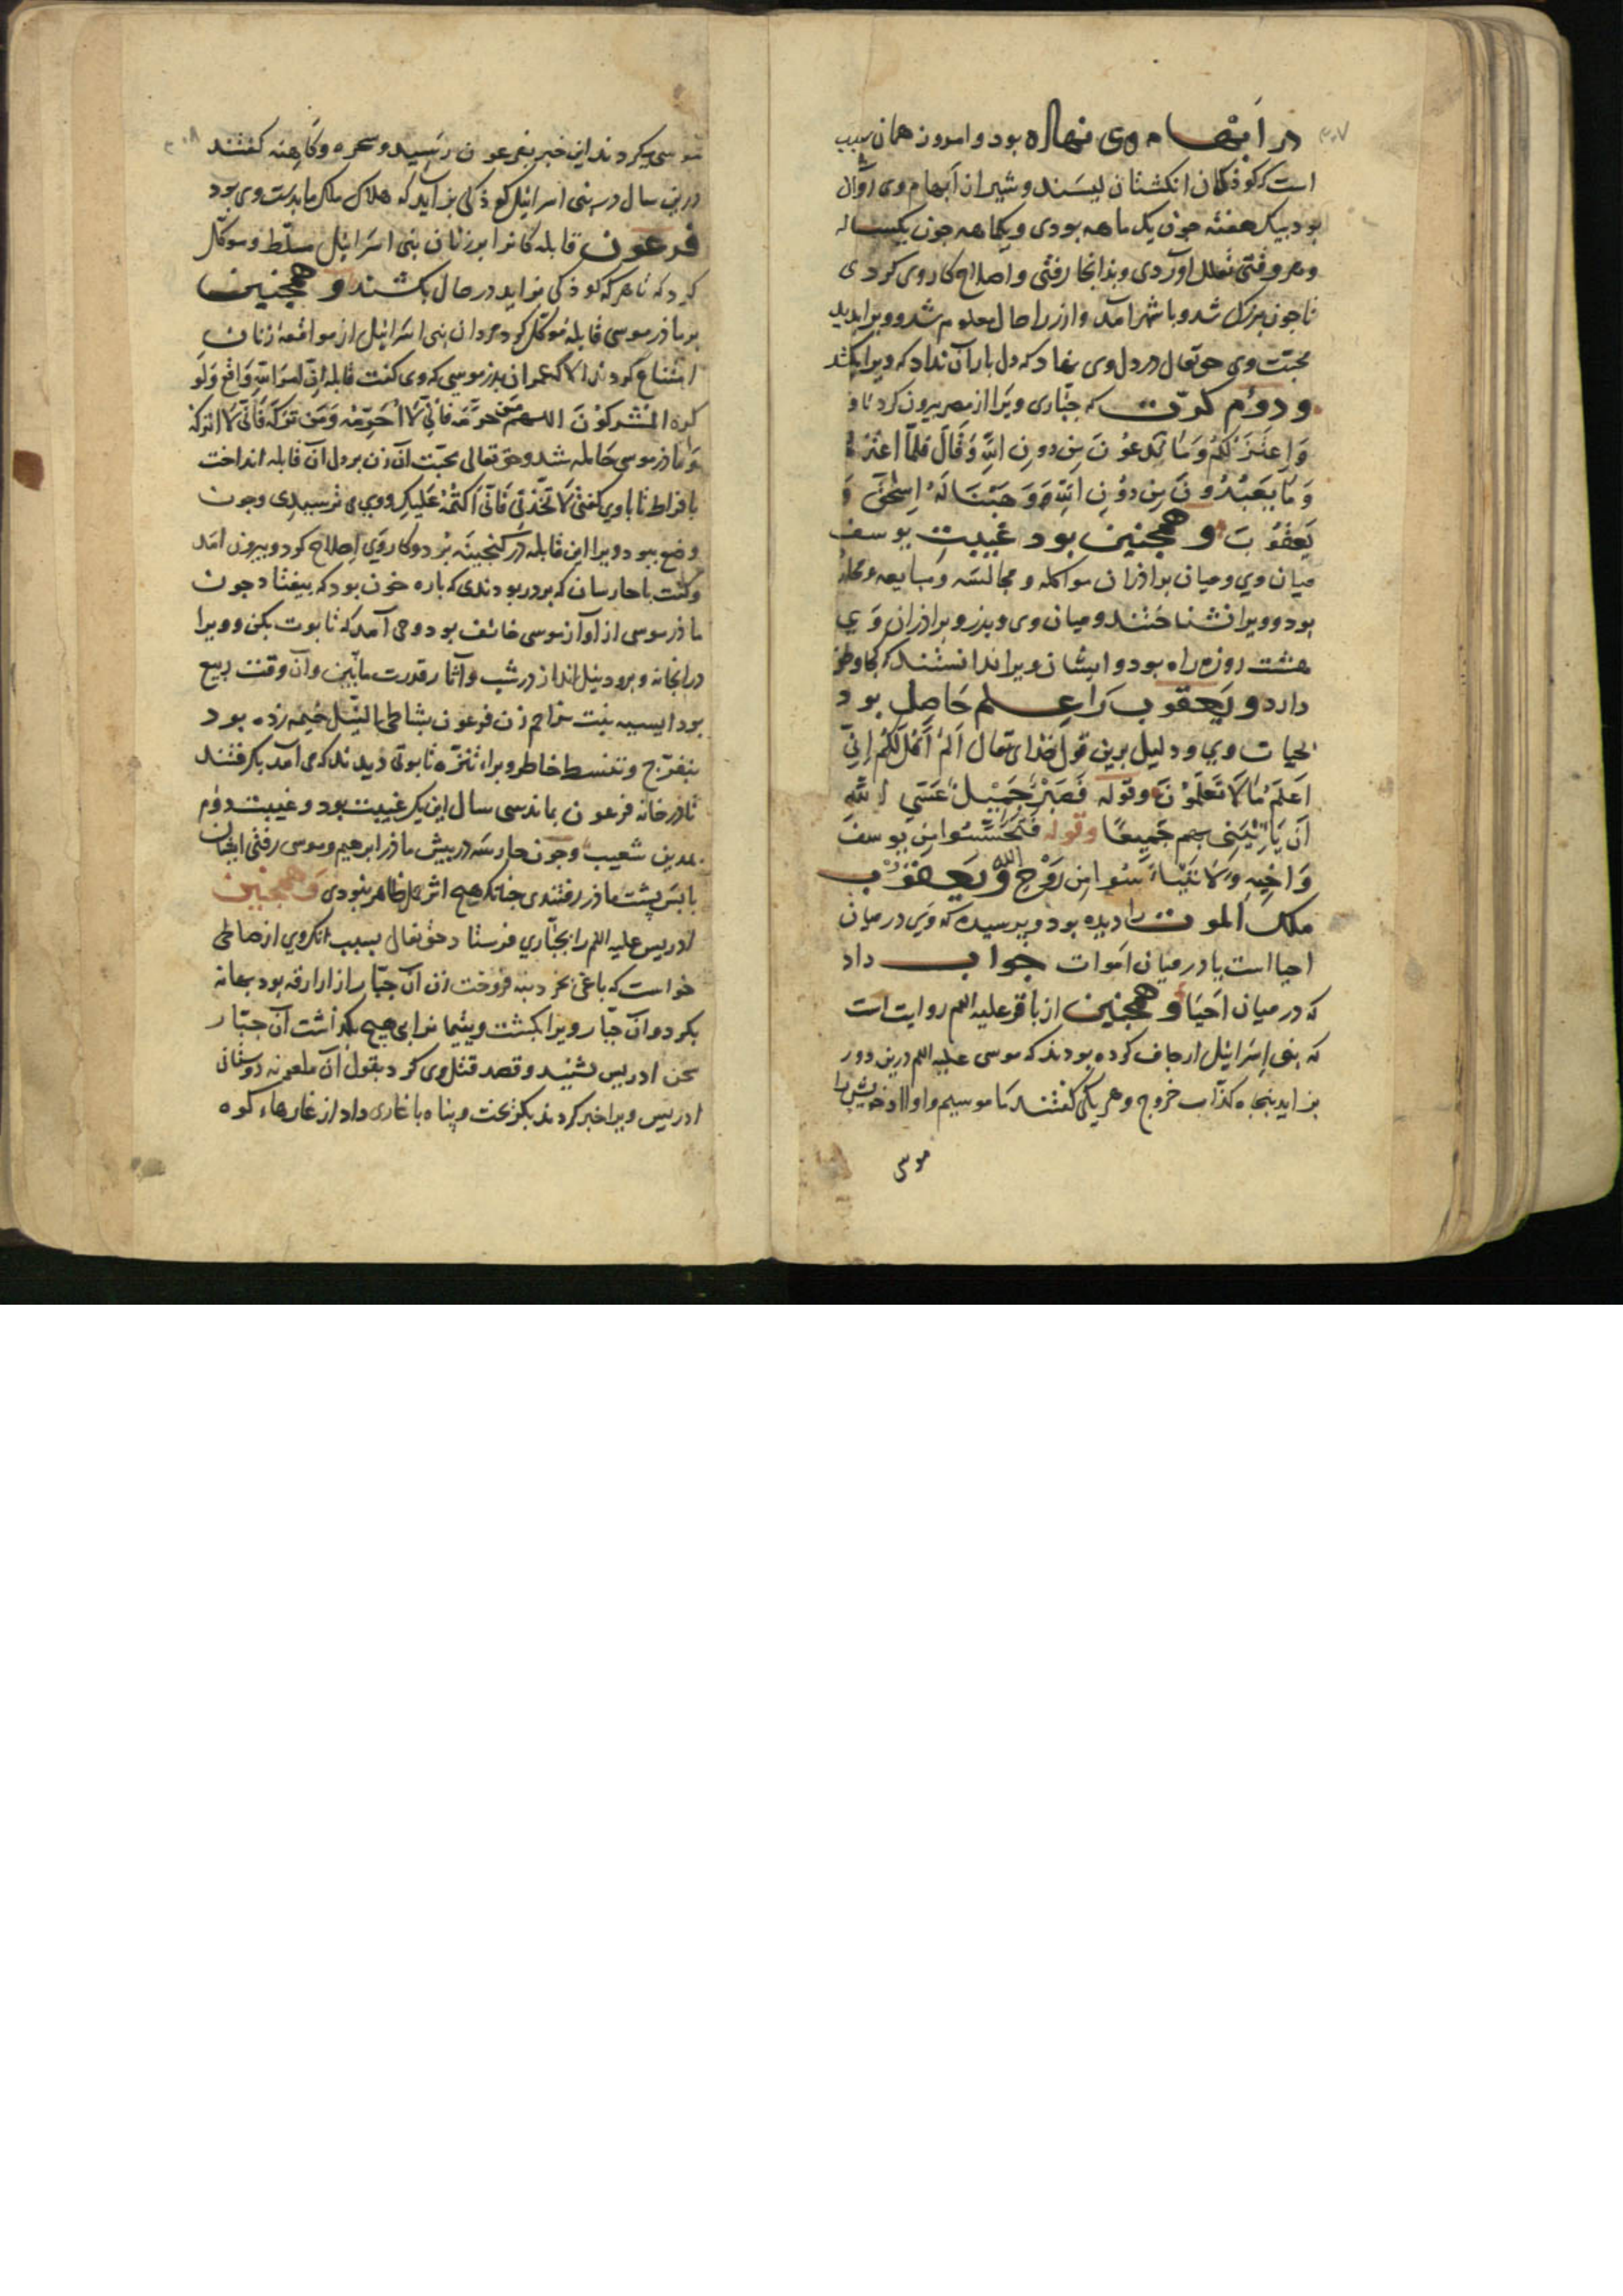 ۳۰۷
در ابهام وی نهاده بود و امروز همان سبب
است که کوذکان انکشتان لیسند و شیر ان ابهام وی روان
بود بیک هفته جون یک ماهه بودی و یکماهه جون یکساله
و هر وقتی تعلل اوردی و بذانجا رفتی و اصلاح کار وی کردی
تا جون بزرک شد و با شهر آمد و ازر را حال معلوم شد و ویرا بدید
محبت وی حق تعالی در دل وی نهاد که دل بار آن نداد که ویرا بکشد
و دوم کرّت که جبّاری ویرا از مصر بیرون کرد تا و
وَاعْتَزِلُكُمْ وَمَا تَدْعُونَ مِن دُونِ اللهِ وَقَالَ فَلَمّا اعْتَزَلَهُمْ
وَمَا يَعْبُدُونَ مِن دُوْنِ اللهِ وَهَبْنَا لَهُ اِسْحٰقَ وَ
يَعْقُوْبَ و همجنین بود غیبت یوسف
میان وی و میان براذران مواکله و مجالسه و مبایعه و محادثه
بود و ویرا نشناختند و میان وی و پذر و براذران وَی
هشت روزه راه بود و ایشان ویرا ندانستند که کجا وطن
دارد و یعقوب را علم حاصل بود
بحیات وی و دلیل برین قول خذای تعالی اَلَمْ اَقُلْ لَكُمْ اِنّي
اَعْلَمُ مَا لَا تَعْلَمُوْنَ وقوله فَصَبْرٌ جَمِيْلٌ عَسَى اللهُ
اَنْ يَأْتِيَنِي بِهِم جَمِيعًا وقوله فَتَحَسَّسُوا مِن يُوسفَ
وَاخِيْهِ وَلَا تَيْأَسُوا مِن رَوْحِ اللهِ و یعقوب
ملک الموت را دیده بود و پرسیده که وَی در میان
احیا است یا در میان اموات جواب داد
که در میان احیا و همجنین از باقر علیه السلم روایت است
که بنی اسرائیل ارجاف کرده بودند که موسی علیه السلم درین دور
بزاید پنجاه کذّاب خروج و هر یکی کفتند ما موسیم و اولاد خویش را
موسی
۳۰۸
موسی میکردند این خبر بفرعون رسید و سحره و کاهنه کفتند
درین سال در بنی اسرائیل کوذکی بزاید که هلاک ملک ما بدست وی بود
فرعون قابله کانرا بر زنان بنی اسرائیل مسلّط و موکّل
کرد که تا هر که کوذکی بزاید در حال بکشند و همجنین
بر ماذر موسی قابله موکّل کرد مردان بنی اسرائیل از مواقعهٔ زنان
امتناع کردند الا که عمران پذر موسی که وی کفت قابله انّ امر اللهِ وَاقِعٌ وَلَو
کره المُشْرِكُوْنَ اللهم من حرّمه فَانّي لَا اُحَرِّمْهُ وَمَنْ تَرَكَهُ فَاِنّي لَا اَتْرُكهُ
و ماذر موسی حامله شد و حق تعالی محبّت آن زن بر دل آن قابله انداخت
بافراط تا با وی کفتی لَا تَحْزَني فَانّي اَكْتُمُهُ عَلَيكِ و وی می ترسیدی و جون
وضع ببود ویرا این قابله در کنجینه بُرد و کار وَی اصلاح کرد و بیرون امد
و کفت با حارسان که بر در بودندی که پاره خون بود که بیفتاد جون
ماذر موسی از آواز موسی خائف بود وحی آمد که تابوت بکن و ویرا
در انجا نه و برود نیل انداز در شب و آثار قدرت ما ببین وان وقت ربیع
بود ایسیه بنت مزاحم زن فرعون بشاطی النّیل خیمه زده بود
بتفرّج و تنبسط خاطر و برای تنزّه تابوتی دیدند که می آمد بکرفتند
تا در خانه فرعون بماند سی سال این یک غیبت بود و غیبت دوم
بمدین شعیب و جون حارسه در پیش ماذر ابرهیم و موسی رفتی ایشان
با پس پشت ماذر رفتندی جنانک هیچ اثر حمل ظاهر نبودی و همجنین
ادریس علیه السلم را بجبّاری فرستاد حق تعالی بسبب انک وی از صالحی
خواست که باغی بخرد بنه فروخت زن آن جبّار از ازارقه بود بهانه
بکرد و آن جبّار ویرا بکشت و یتیمانرا بی هیچ بکذاشت آن جبّار
سخن ادریس نشنید و قصد قتل وی کرد بقول آن ملعونه دوستان
ادریس ویرا خبر کردند بکریخت و پناه با غاری داد از غارهاء کوه